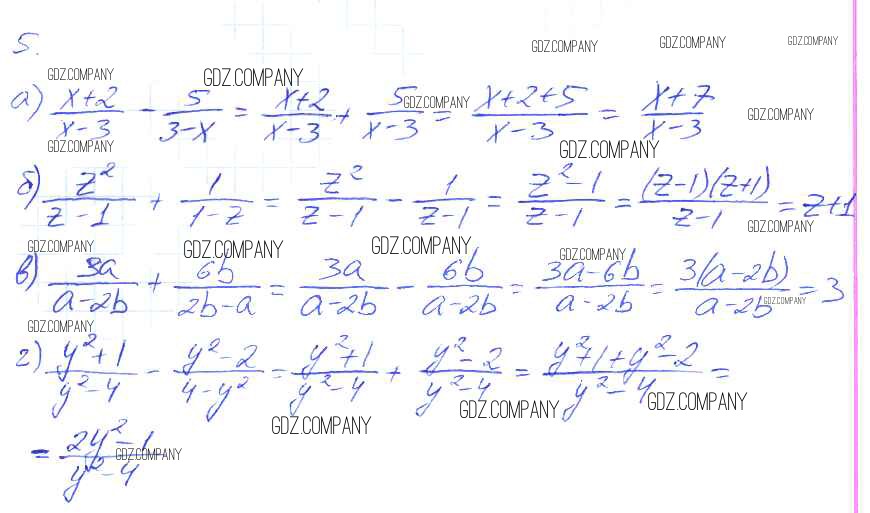 5.
GDZ.COMPANY GDZ.COMPANY GDZ.COMPANY
GDZ.COMPANY GDZ.COMPANY GDZ.COMPANY
а) (x+2)/(x-3) - 5/(3-x) = (x+2)/(x-3) + 5/(x-3) = (x+2+5)/(x-3) = (x+7)/(x-3)
GDZ.COMPANY GDZ.COMPANY GDZ.COMPANY
б) z²/(z-1) + 1/(1-z) = z²/(z-1) - 1/(z-1) = (z²-1)/(z-1) = (z-1)(z+1)/(z-1) = z+1
GDZ.COMPANY
GDZ.COMPANY GDZ.COMPANY GDZ.COMPANY GDZ.COMPANY
в) 3a/(a-2b) + 6b/(2b-a) = 3a/(a-2b) - 6b/(a-2b) = (3a-6b)/(a-2b) = 3(a-2b)/(a-2b) = 3
GDZ.COMPANY
GDZ.COMPANY
г) (y²+1)/(y²-4) - (y²-2)/(4-y²) = (y²+1)/(y²-4) + (y²-2)/(y²-4) = (y²+1+y²-2)/(y²-4) =
GDZ.COMPANY GDZ.COMPANY GDZ.COMPANY
= (2y²-1)/(y²-4)
GDZ.COMPANY